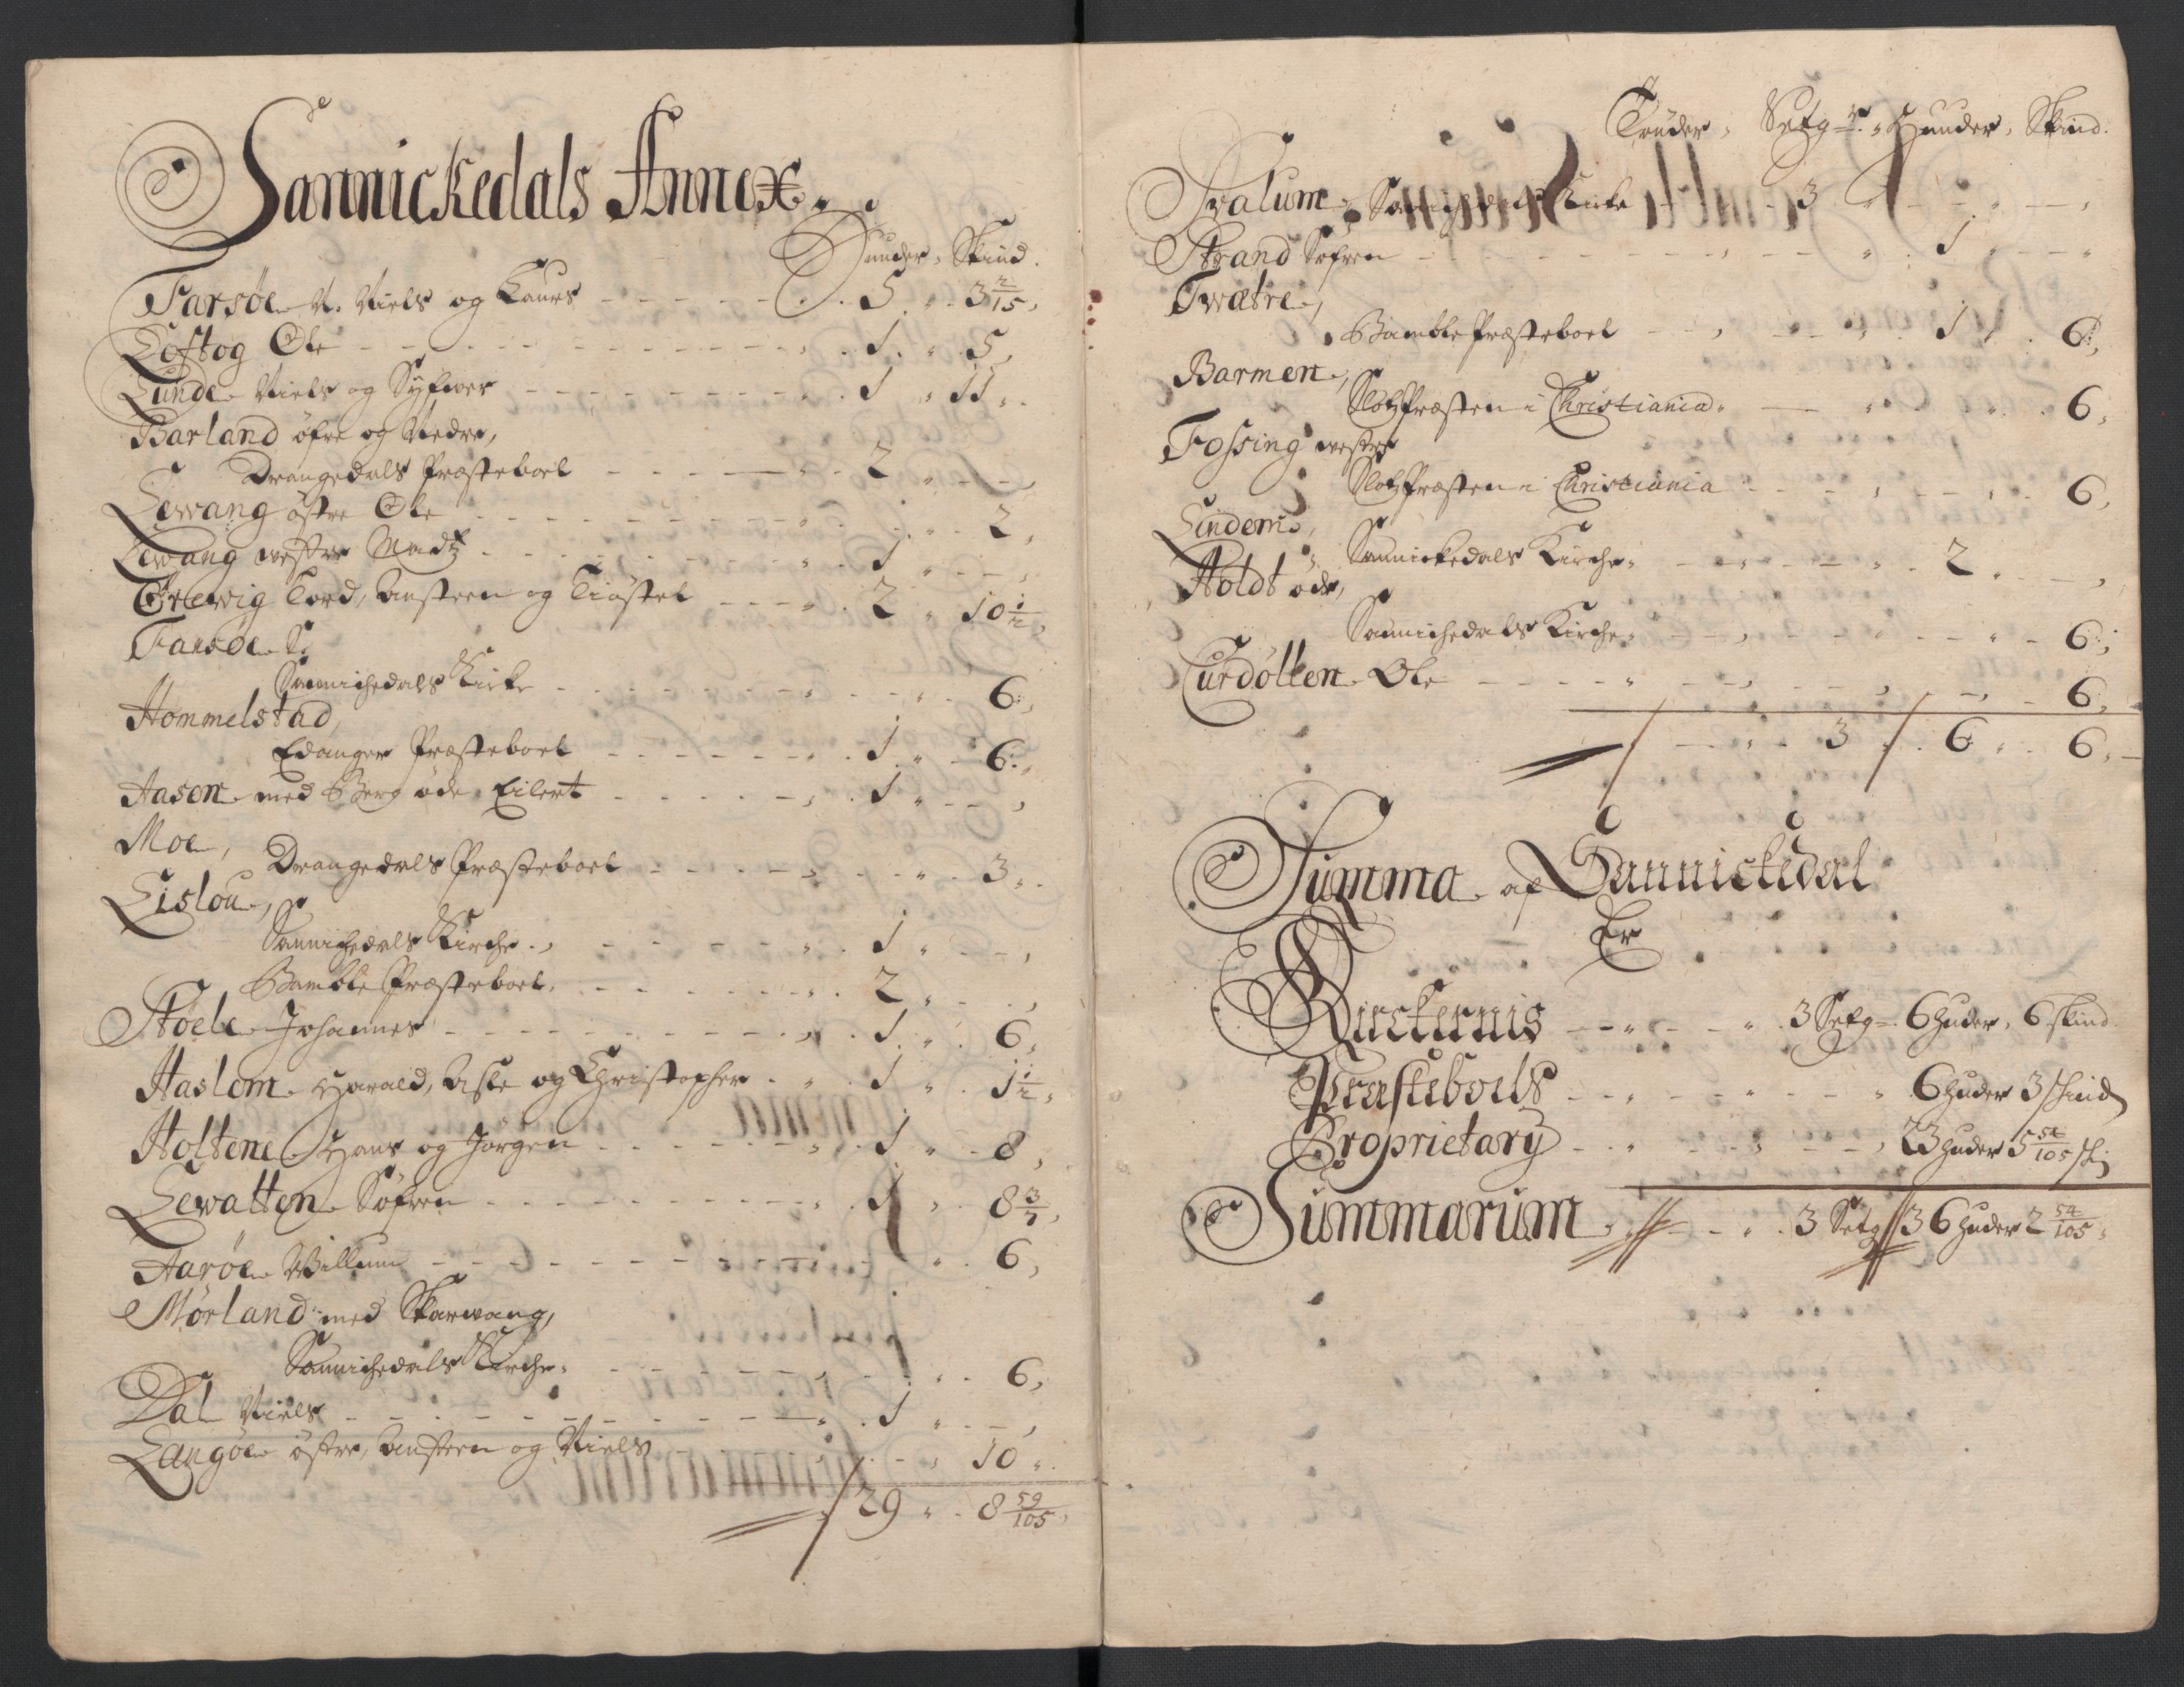 Sannickedals Annex.
Huuder, Skind.
Farsøe N. Niels og Laurs 5 3 2/15
Loftog Ole 1 5
Lunde Niels og Syfwer 1 11
Barland øfre og Nedre,
Drangedals Præsteboel 2
Lewang østre Ole 2
Lewang westre Madtz 1
Tord, Austeen og Tiøstel 2 10 1/2
Farsøe S:
Sannichedals Kirke 6
Hommelstad,
Edanger Præsteboel 1 6
Aasen med Berg øde Eilert 1
Moe,
Drangedals Præsteboel 3
Lislou,
Sannichedals Kirche 1
Bamble Præsteboel 2
Støele Johannes 1 6
Haslem Harald, Asle og Christopher 1 1 1/2
Holtene Hans og Jørgen 1 8
Lewatten Søfren 1 8 3/7
Aarøe Willum 6
Mørland med Skarwang,
Sannichedals Kirche 6
Dal Niels 1
Langøe østre, Austeen og Niels 10
29 8 59/105
Tønder, Setgr. Huuder, Skind.
Hvalum, Sannichedals Kirke 3
Strand Søfren 1
Twætre,
Bamble Præsteboel 1 6
Barmen,
Slotz Præsten i Christiania 6
Fossing westre
Slotz Præsten i Christiania 6
Lindem,
Sannickedals Kirche 2
Holdt øde,
Sannichedals Kirche 6
Curdølten Ole 6
3 6 6
Summa af Sannickedal
Er
Kirckernis 3 Setg 6 Huder, 6 skind
Præsteboels 6 Huder 3 skind
Proprietary 23 Huder 5 54/105 ski
Summarum 3 Setg 36 Huder 2 54/105